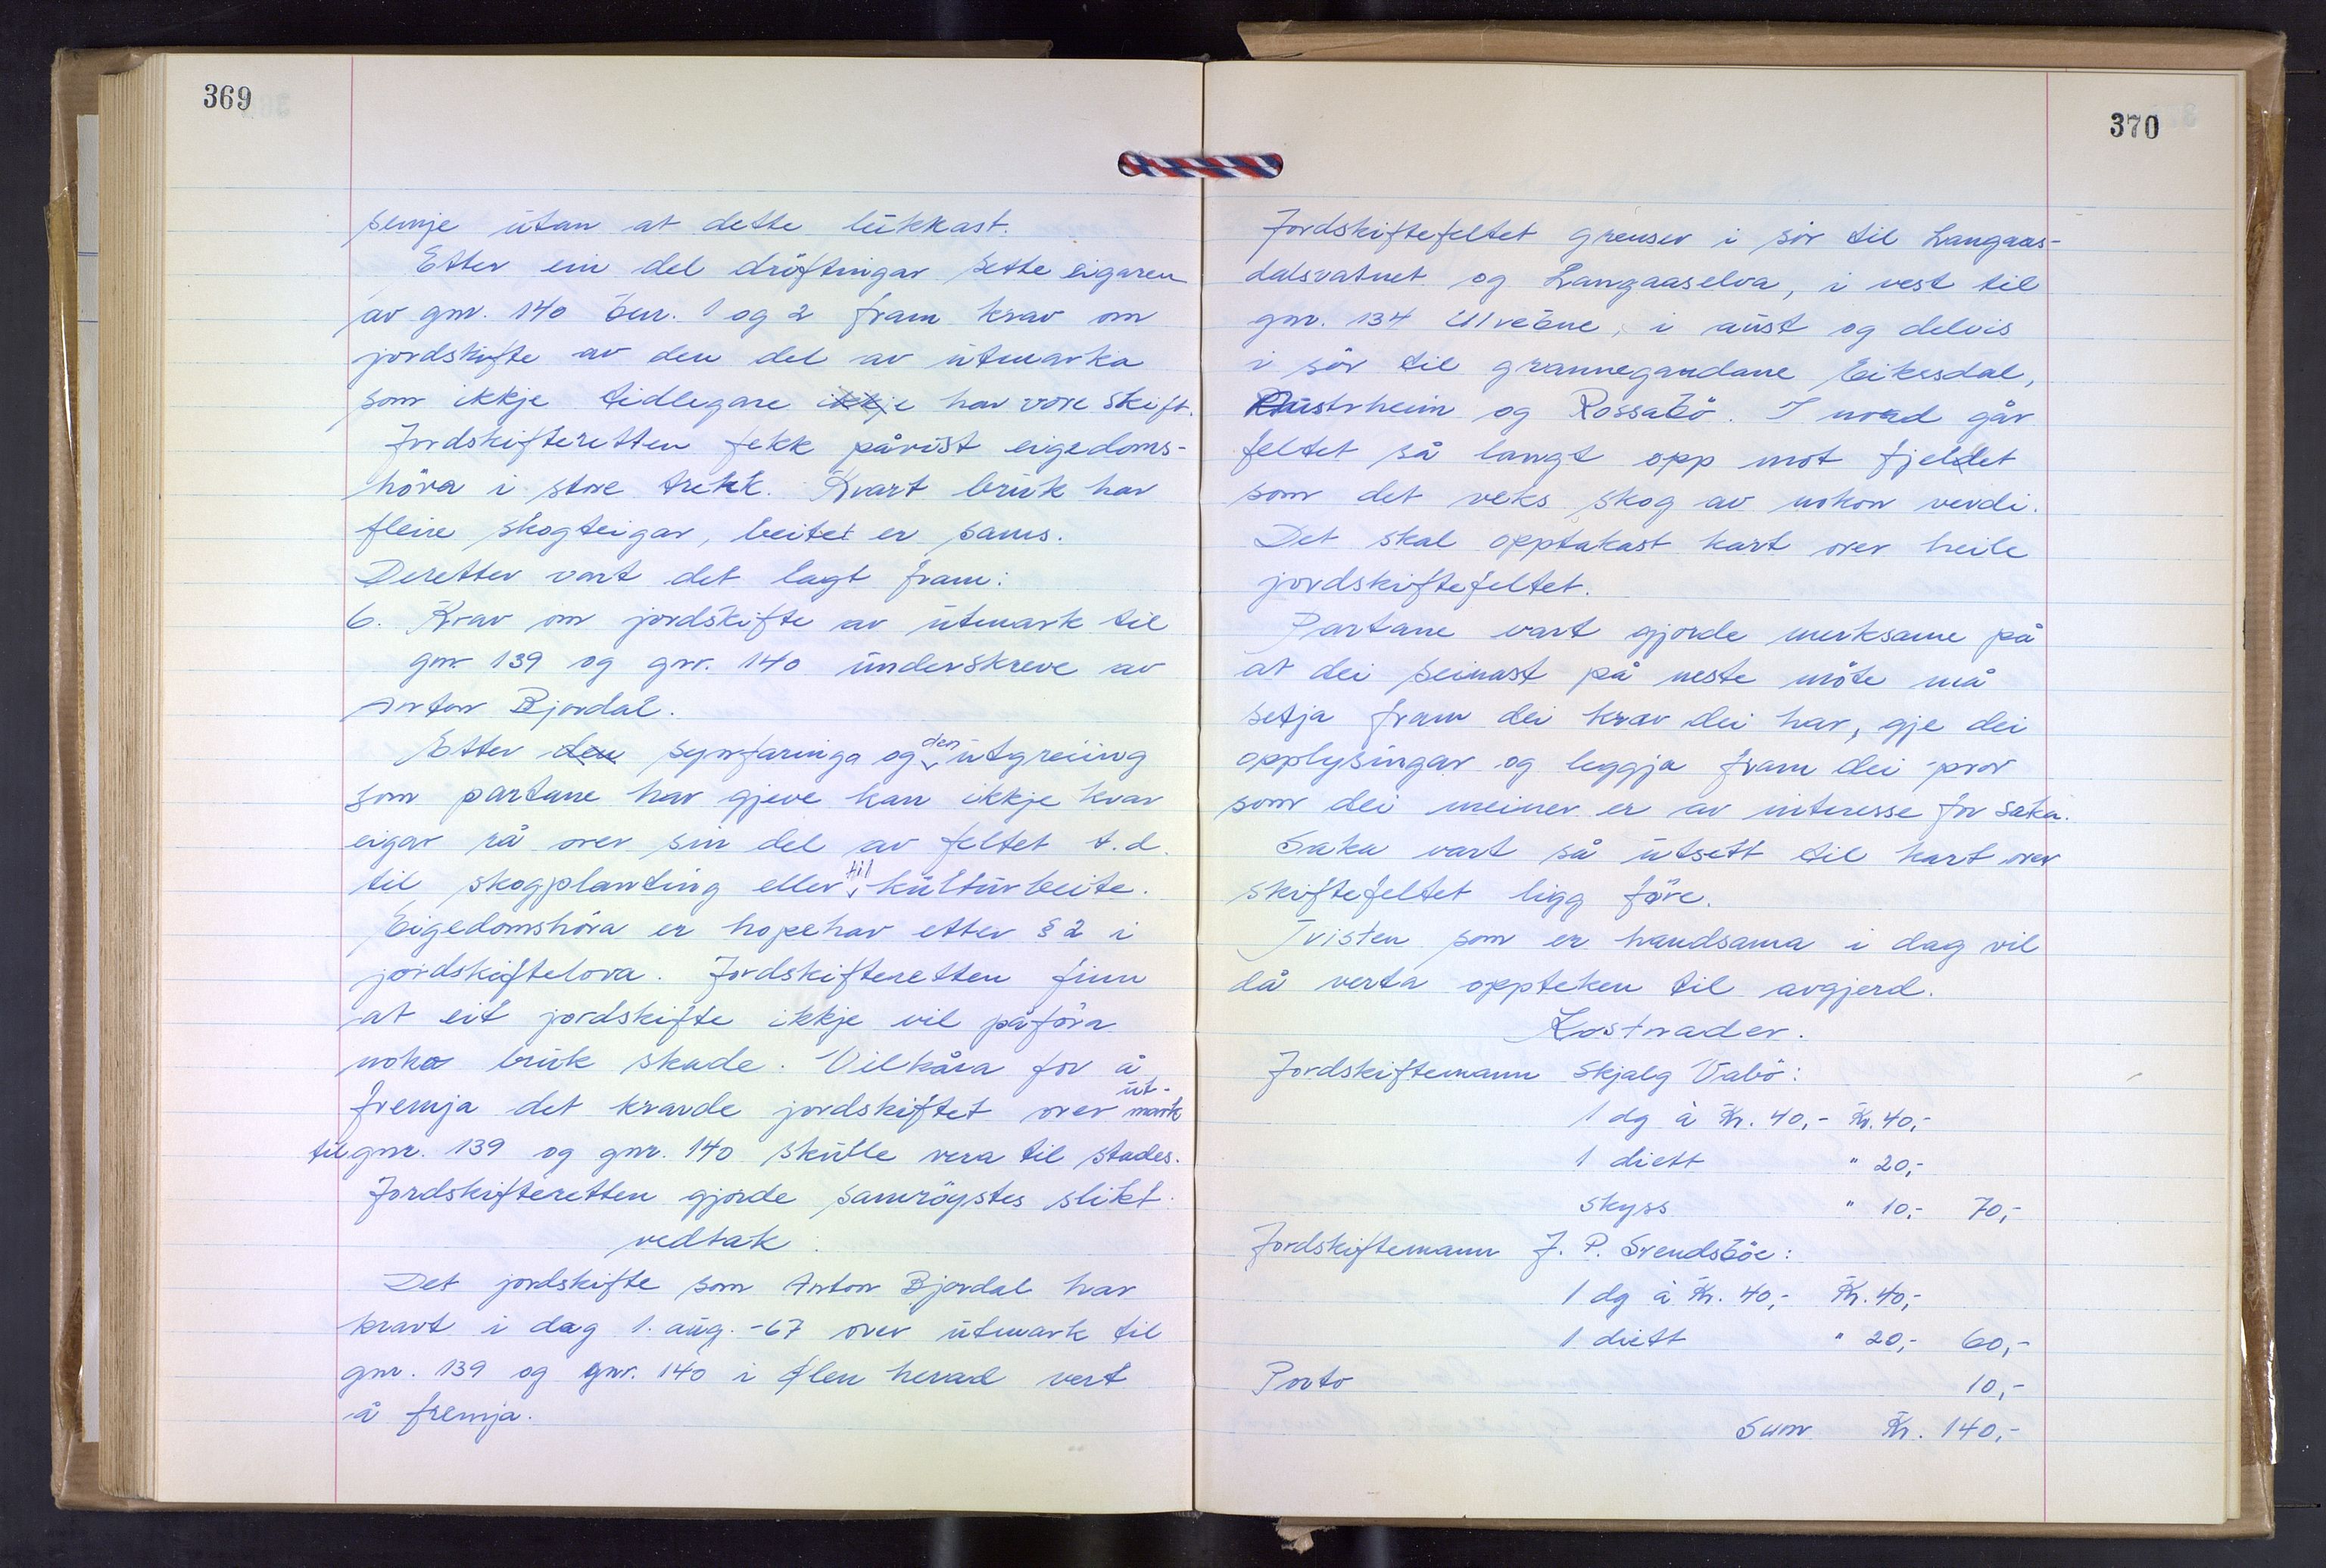 369
semje utan at dette lukkast.
Etter ein del dröftingar sette eigaren
av gnr. 140 bnr. 1 og 2 fram krav om
jordskifte av den del av utmarka
som ikkje tidlegare ikkje har vore skift.
Jordskifteretten fekk påvist eigedoms-
höva i store trekk. Kvart bruk har
fleire skogteigar, beitet er sams.
Deretter vart det lagt fram:
6. Krav om jordskifte av utmark til
gnr 139 og gnr. 140 underskreve av
Anton Bjordal.
Etter den synfaringa og den utgreiing
som partane har gjeve kan ikkje kvar
eigar rå over sin del av feltet t.d.
til skogplanting eller til kulturbeite.
Eigedomshöva er hopehav etter § 2 i
jordskiftelova. Jordskifteretten finn
at eit jordskifte ikkje vil påföra
noko bruk skade. Vilkåra for å
fremja det kravde jordskiftet over ut-mark
til gnr. 139 og gnr. 140 skulle vera til stades.
Jordskifteretten gjorde samröystes slikt
vedtak:
Det jordskifte som Anton Bjordal har
kravt i dag 1. aug. -67 over utmark til
gnr. 139 og gnr. 140 i Ølen herad vert
å fremja.
370
Jordskiftefeltet grenser i sör til Langaas-
dalsvatnet og Langaaselva, i vest til
gnr. 134 Ulvebne, i aust og delvis
i sör til grannegardane Eikesdal,
Austrheim og Rossabö. I nord går
feltet så langt opp mot fjeldet
som det veks skog av nokon verdi.
Det skal opptakast kart over heile
jordskiftefeltet.
Partane vart gjorde merksame på
at dei seinast på neste möte må
setja fram dei krav dei har, gje dei
opplysingar og leggja fram dei prov
som dei meiner er av interesse for saka.
Saka vart så utsett til kart over
skiftefeltet ligg före.
Tvisten som er handsama i dag vil
då verta oppteken til avgjerd.
Kostnader.
Jordskiftemann Skjalg Vabö:
1 dg à Kr. 40,- Kr. 40,-
1 diett " 20,-
skyss " 10,- 70,-
Jordskiftemann J. P. Svendsböe:
1 dg à Kr. 40,- Kr. 40,-
1 diett " 20,- 60,-
Porto 10,-
Sum Kr. 140,-